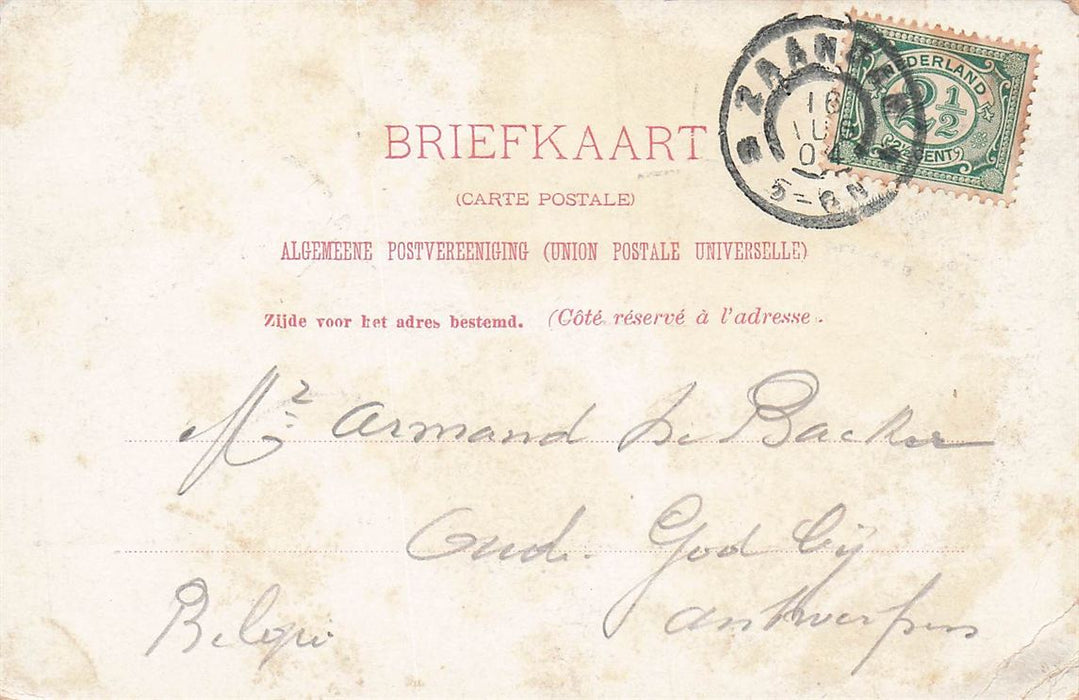 BRIEFKAART
(CARTE POSTALE)
ALGEMEENE POSTVEREENIGING (UNION POSTALE UNIVERSELLE)
Zijde voor het adres bestemd. (Côté réservé à l'adresse.
NEDERLAND
2½
(2½ CENT)
ZAANDAM
5-6N
Mr Armand De Backer
Oude God bij
Antwerpen
Belgie